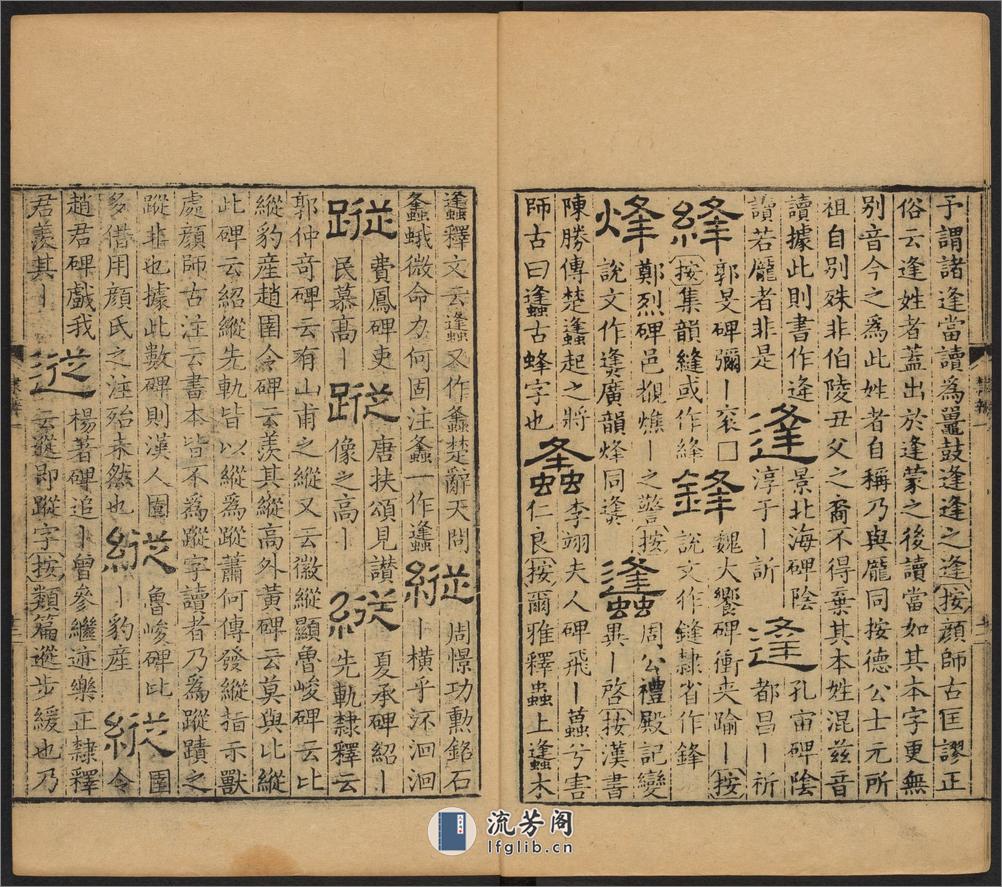 予謂諸逄當讀爲鼉鼓逢逢之逢按顔師古匡謬正
俗云逢姓者蓋出於逢蒙之後讀當如其本字更無
别音今之爲此姓者自稱乃與龐同按德公士元所
祖自别殊非伯陵丑父之裔不得棄其本姓混茲音
讀據此則書作逄 景北海碑陰 逢 孔宙碑陰
讀若龐者非是 逢 淳于丨訢 逢 都昌丨祈
縫 郭旻碑彌丨衮□ 鋒 魏大饗碑衝夾踰丨按
按集韻縫或作絳 說文作鏠隸省作鋒
烽 鄭烈碑邑覩燋丨之警按 周公禮殿記變
說文作㷭廣韻烽同㷭 蠭 異丨啓按漢書
陳勝傳楚蠭起之將 李翊夫人碑飛丨蠆兮害
師古曰蠭古蜂字也 螽 仁良按爾雅釋蟲土蠭木
蠭釋文云蠭又作螽楚辭天問 縱 周憬功勲銘石
螽蛾微命力何固注螽一作蠭 丨橫乎㳅洄洄
蹤 費鳳碑吏 蹤 唐扶頌見讚 縱 夏承碑紹丨
民慕高丨 像之高丨 先軌隸釋云
郭仲奇碑云有山甫之縱又云徽縱顯魯峻碑云比
縱豹產趙圉令碑云羨其縱高外黄碑云莫與比縱
此碑云紹縱先軌皆以縱爲蹤蕭何傳發縱指示獸
處顔師古注云書本皆不爲蹤字讀者乃爲蹤蹟之
蹤非也據此數碑則漢人固 縱 魯峻碑比 縱 圉
多借用顔氏之注殆未然也 丨豹產 令
趙君碑戲我 蹤 楊著碑追丨曾參繼迹樂正隸釋
君羨其丨 云蹤即蹤字按類篇蹤步緩也乃
流芳阁
lfglib.cn